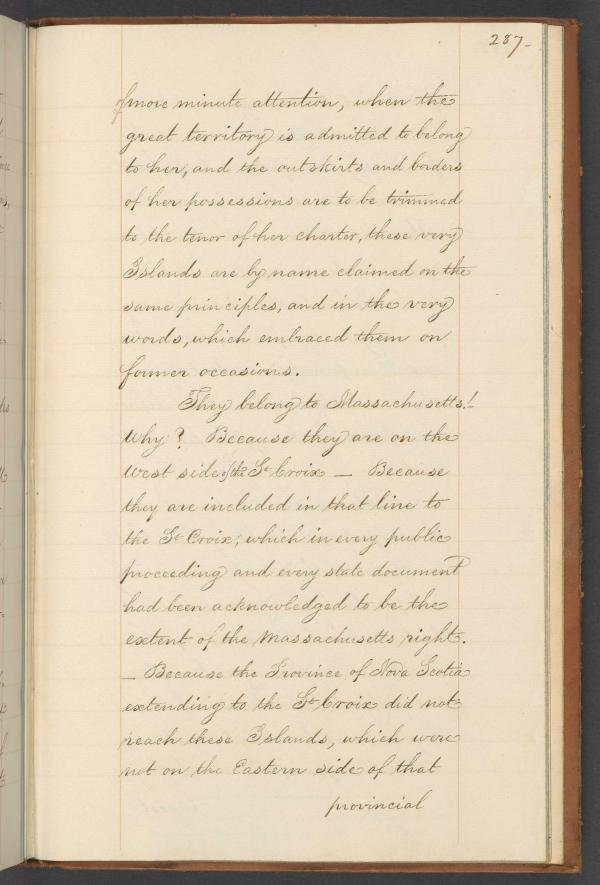 287-
of more minute attention, when the
great territory is admitted to belong
to her, and the outskirts and borders
of her possessions are to be trimmed
to the tenor of her charter, these very
Islands are by name claimed on the
same principles, and in the very
words, which embraced them on
former occasions.
They belong to Massachusetts!-
Why? Because they are on the
West side of the St Croix — Because
they are included in that line to
the St Croix, which in every public
proceeding and every state document
had been acknowledged to be the
extent of the Massachusetts right.
— Because the Province of Nova Scotia
extending to the St Croix did not
reach these Islands, which were
not on the Eastern side of that
provincial